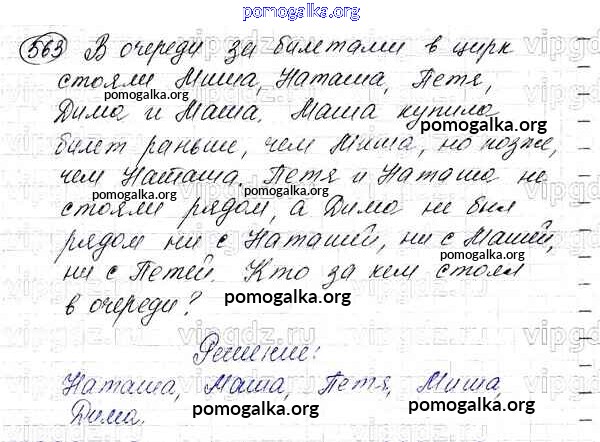 pomogalka.org
563 В очереди за билетами в цирк
стояли Миша, Наташа, Петя,
pomogalka.org
Дима и Маша. Маша купила
pomogalka.org
билет раньше, чем Миша, но позже,
чем Наташа. Петя и Наташа не
pomogalka.org
стояли рядом, а Дима не был
рядом ни с Наташей, ни с Машей,
pomogalka.org
ни с Петей. Кто за кем стоял
в очереди?
pomogalka.org
Решение:
Наташа, Маша, Петя, Миша,
Дима.
pomogalka.org
pomogalka.org